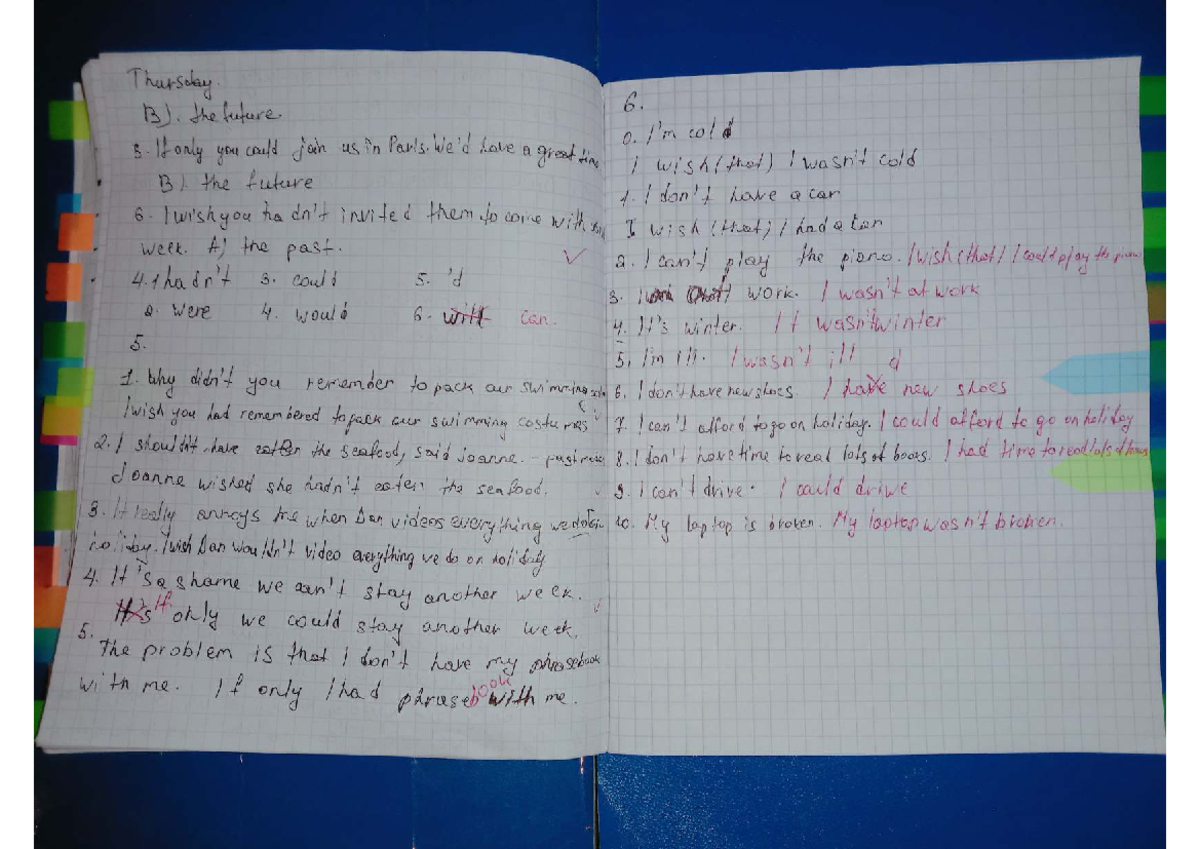 Thursday.
B). the future.
3. If only you could join us in Paris. We'd have a great time
B). the future
6. I wish you hadn't invited them to come with
week. A) the past.
4. 1 hadn't 3. could 5. 'd
2. were 4. would 6. will can.
5.
1. Why didn't you remember to pack our swimming
I wish you had remembered to pack our swimming costumes
2. I shouldn't have eaten the seafood, said Joanne. -
Joanne wished she hadn't eaten the seafood.
3. It really annoys me when Dan videos everything we do on
holiday. I wish Dan wouldn't video everything we do on holiday
4. It's a shame we can't stay another week.
It's If only we could stay another week.
5.
The problem is that I don't have my phrasebook
with me. If only I had phrasebook with me.
6.
0. I'm cold
I wish (that) I wasn't cold
1. I don't have a car
I wish (that) I had a car
2. I can't play the piano. I wish (that) I could play the piano
3. work. I wasn't at work
4. It's winter. It wasn't winter
5. I'm ill. I wasn't ill
6. I don't have new shoes. I have d new shoes
7. I can't afford to go on holiday. I could afford to go on holiday
8. I don't have time to read lots of books. I had time to read lots of
9. I can't drive. I could drive
10. My laptop is broken. My laptop wasn't broken.